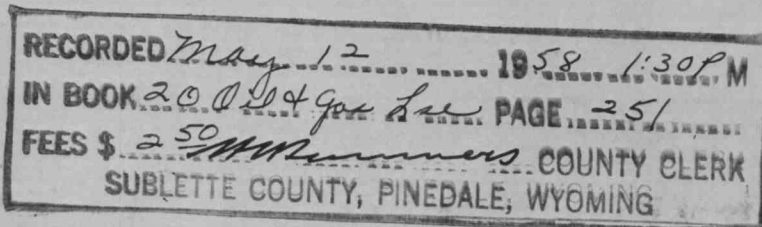 RECORDED May 12 1958 1:30 P M
IN BOOK 20 Oil & Gas Lse PAGE 251
FEES $ 2.50 COUNTY CLERK
SUBLETTE COUNTY, PINEDALE, WYOMING